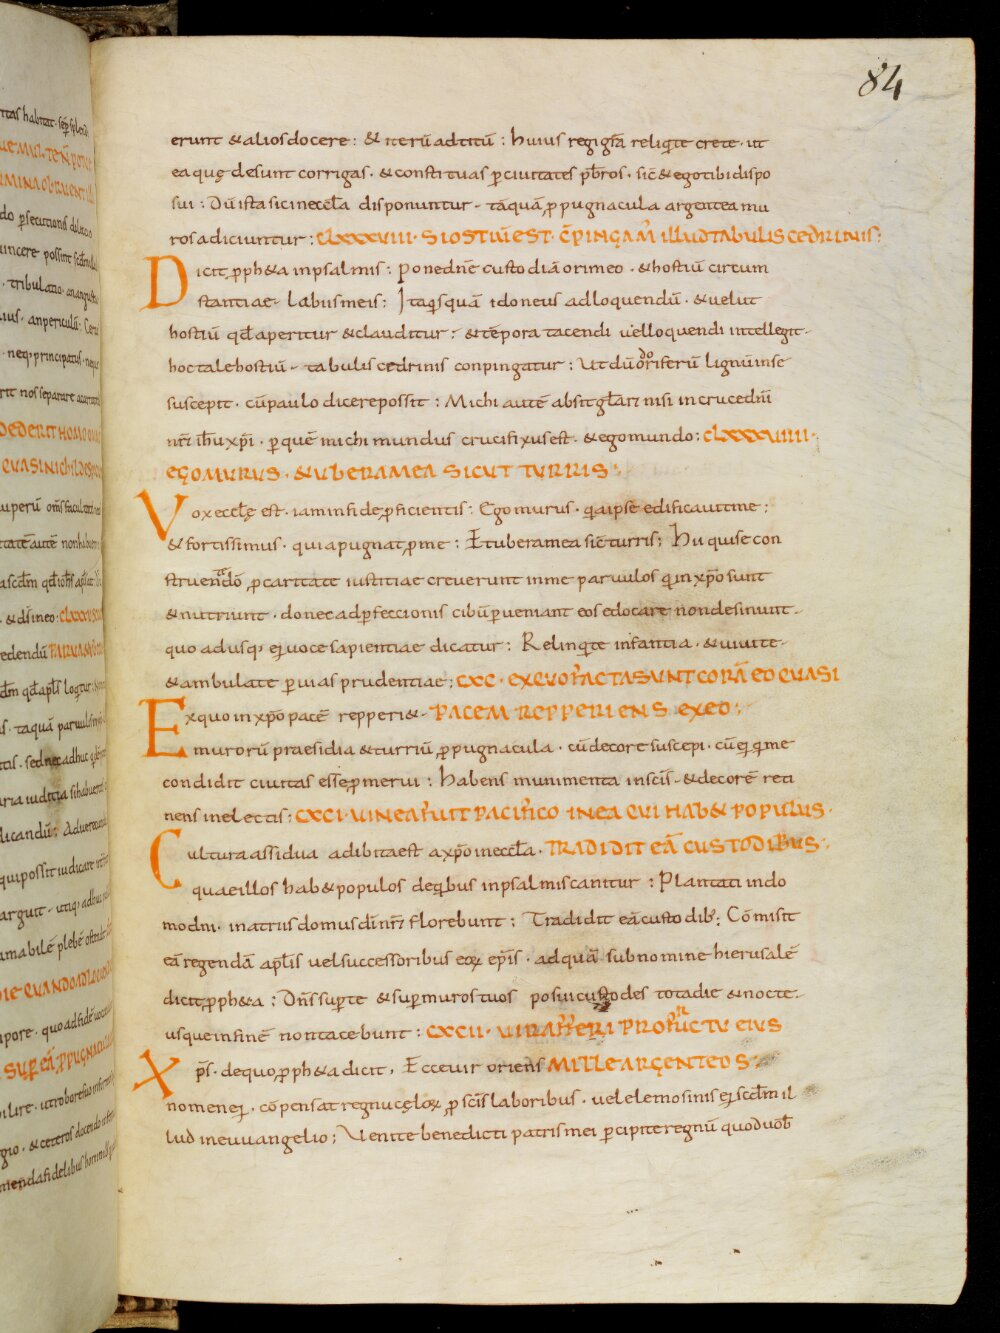 84
erunt & alios docere : & iterū ad titū : huius regi gr̄a reliq te crete · ut
ea quę desunt corrigas · & constituas ꝑ ciuitates p̄bros · sic̄ & ego tibi dispo
sui : Dū ista sic in eccl̄a disponuntur · tāquā ꝓpugnacula argentea mu
ros adiciuntur : CLXXXVIII · SI OSTIŪ EST · CŌPINGAM' ILLUD TABULIS CEDRINIS :
Dicit ꝓph&a in psalmis : Pone dn̄e custodiā ori meo · & hostiū circum
stantiae labiis meis : Itaq; sꝗuā idoneus ad loquendū · & uelut
hostiū qd̄ aperitur & clauditur : & tēpora tacendi uel loquendi intellegit ·
hoc tale hostiū · tabulis cedrinis conpingatur : Ut dū odoriferū lignū in se
suscepit · cū paulo dicere possit : Michi autē absit gl̄ari nisi in cruce dn̄i
nr̄i ih̄u xp̄i · ꝑ quē michi mundus crucifixus est · & ego mundo : CLXXXVIIII ·
EGO MURUS · & UBERA MEA SICUT TURRIS :
Vox eccl̄ę est · iam in fide ꝓficientis : Ego murus · q̄a ipse edificauit me :
& fortissimus · quia pugnat ꝓ me : Et ubera mea sic̄ turris : Hii qui se con
struendo · ꝑ caritate iustitiae creuerunt in me paruulos qui in xp̄o sunt
& nutriunt · donec ad ꝑfeccionis cibū ꝑueniant eos edocare non desinunt ·
quo adusq; ei uoce sapientiae dicatur : Relinq̄te infantia · & uiuite ·
& ambulate ꝑ uias prudentiae ; CXC · EX QUO FACTA SUNT CORĀ EO QUASI
Ex quo in xp̄o pacē repperi& · PACEM REPPERIENS EXEO :
murorū praesidia & turriū ꝓpugnacula · cū decore suscepi · cū ei q̄ me
condidit ciuitas esse ꝓmerui : habens munimenta in scīs · & decorē reti
nens in electis : CXCI · UINEA FUIT PACIFICO IN EA QUI HAB& POPULUS ·
Cultura assidua adibita est a xp̄o in eccl̄a · TRADIDIT EĀ CUSTODIBUS ·
quae illos hab& populos de qibus in psalmis canitur : Plantati in do
mo dn̄i · in atriis domus dī nr̄i florebunt : Tradidit eā custodib; : Cōmisit
eā regendā apl̄is uel successoribus eoꝝ ep̄is · ad quā sub nomine hierusalē
dicit ꝓph&a : Dn̄s supte & sup muros tuos posui custodes tota die & nocte ·
usque in finē non tacebunt : CXCII · UIR AFFERT PRO FRUCTU EIUS
Xp̄s · de quo ꝓph&a dicit · Ecce uir oriens MILLE ARGENTEOS ·
nomen ei · cōpensat regnū cęloꝝ ꝓ scīs laboribus · uel elemosinis ei scd̄m il
lud in euuangelio ; Uenite benedicti patris mei ꝑcipite regnū quod uob̄